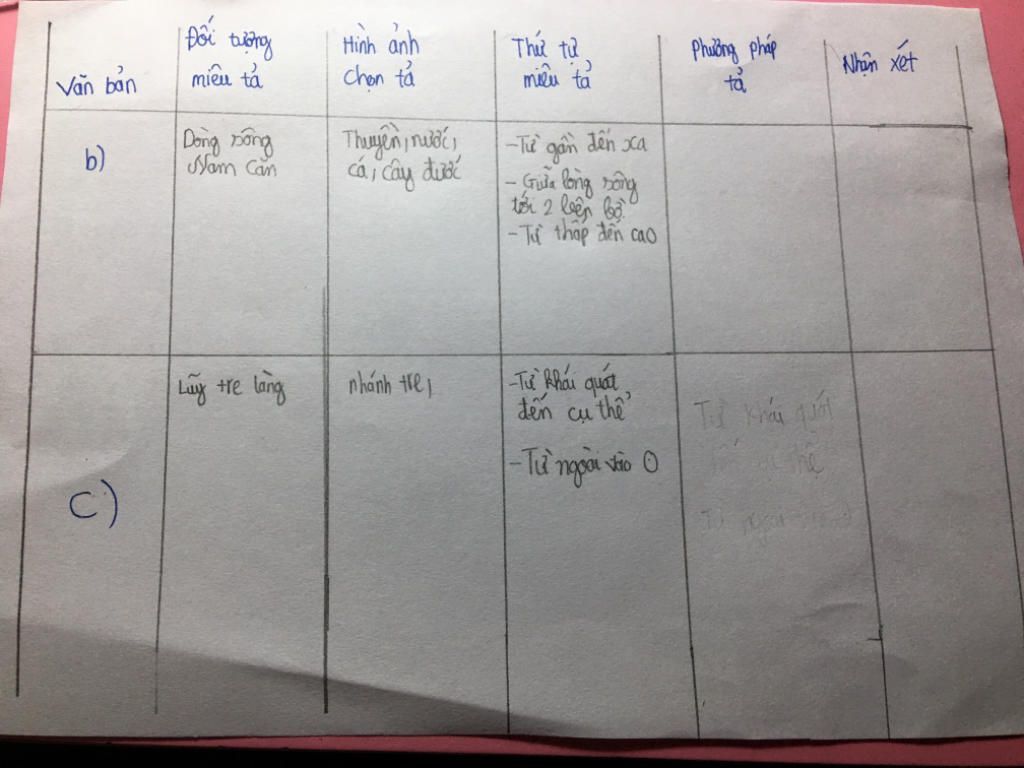 Văn bản
Đối tượng
miêu tả
Hình ảnh
chọn tả
Thứ tự
miêu tả
Phương pháp
tả
Nhận xét
b)
Dòng sông
Năm Căn
Thuyền, nước,
cá, cây đước
- Từ gần đến xa
- Giữa lòng sông
tới 2 bên bờ.
- Từ thấp đến cao
c)
Lũy tre làng
nhánh tre,
- Từ khái quát
đến cụ thể
- Từ ngoài vào O
Từ khái quát
đến cụ thể
Từ ngoài